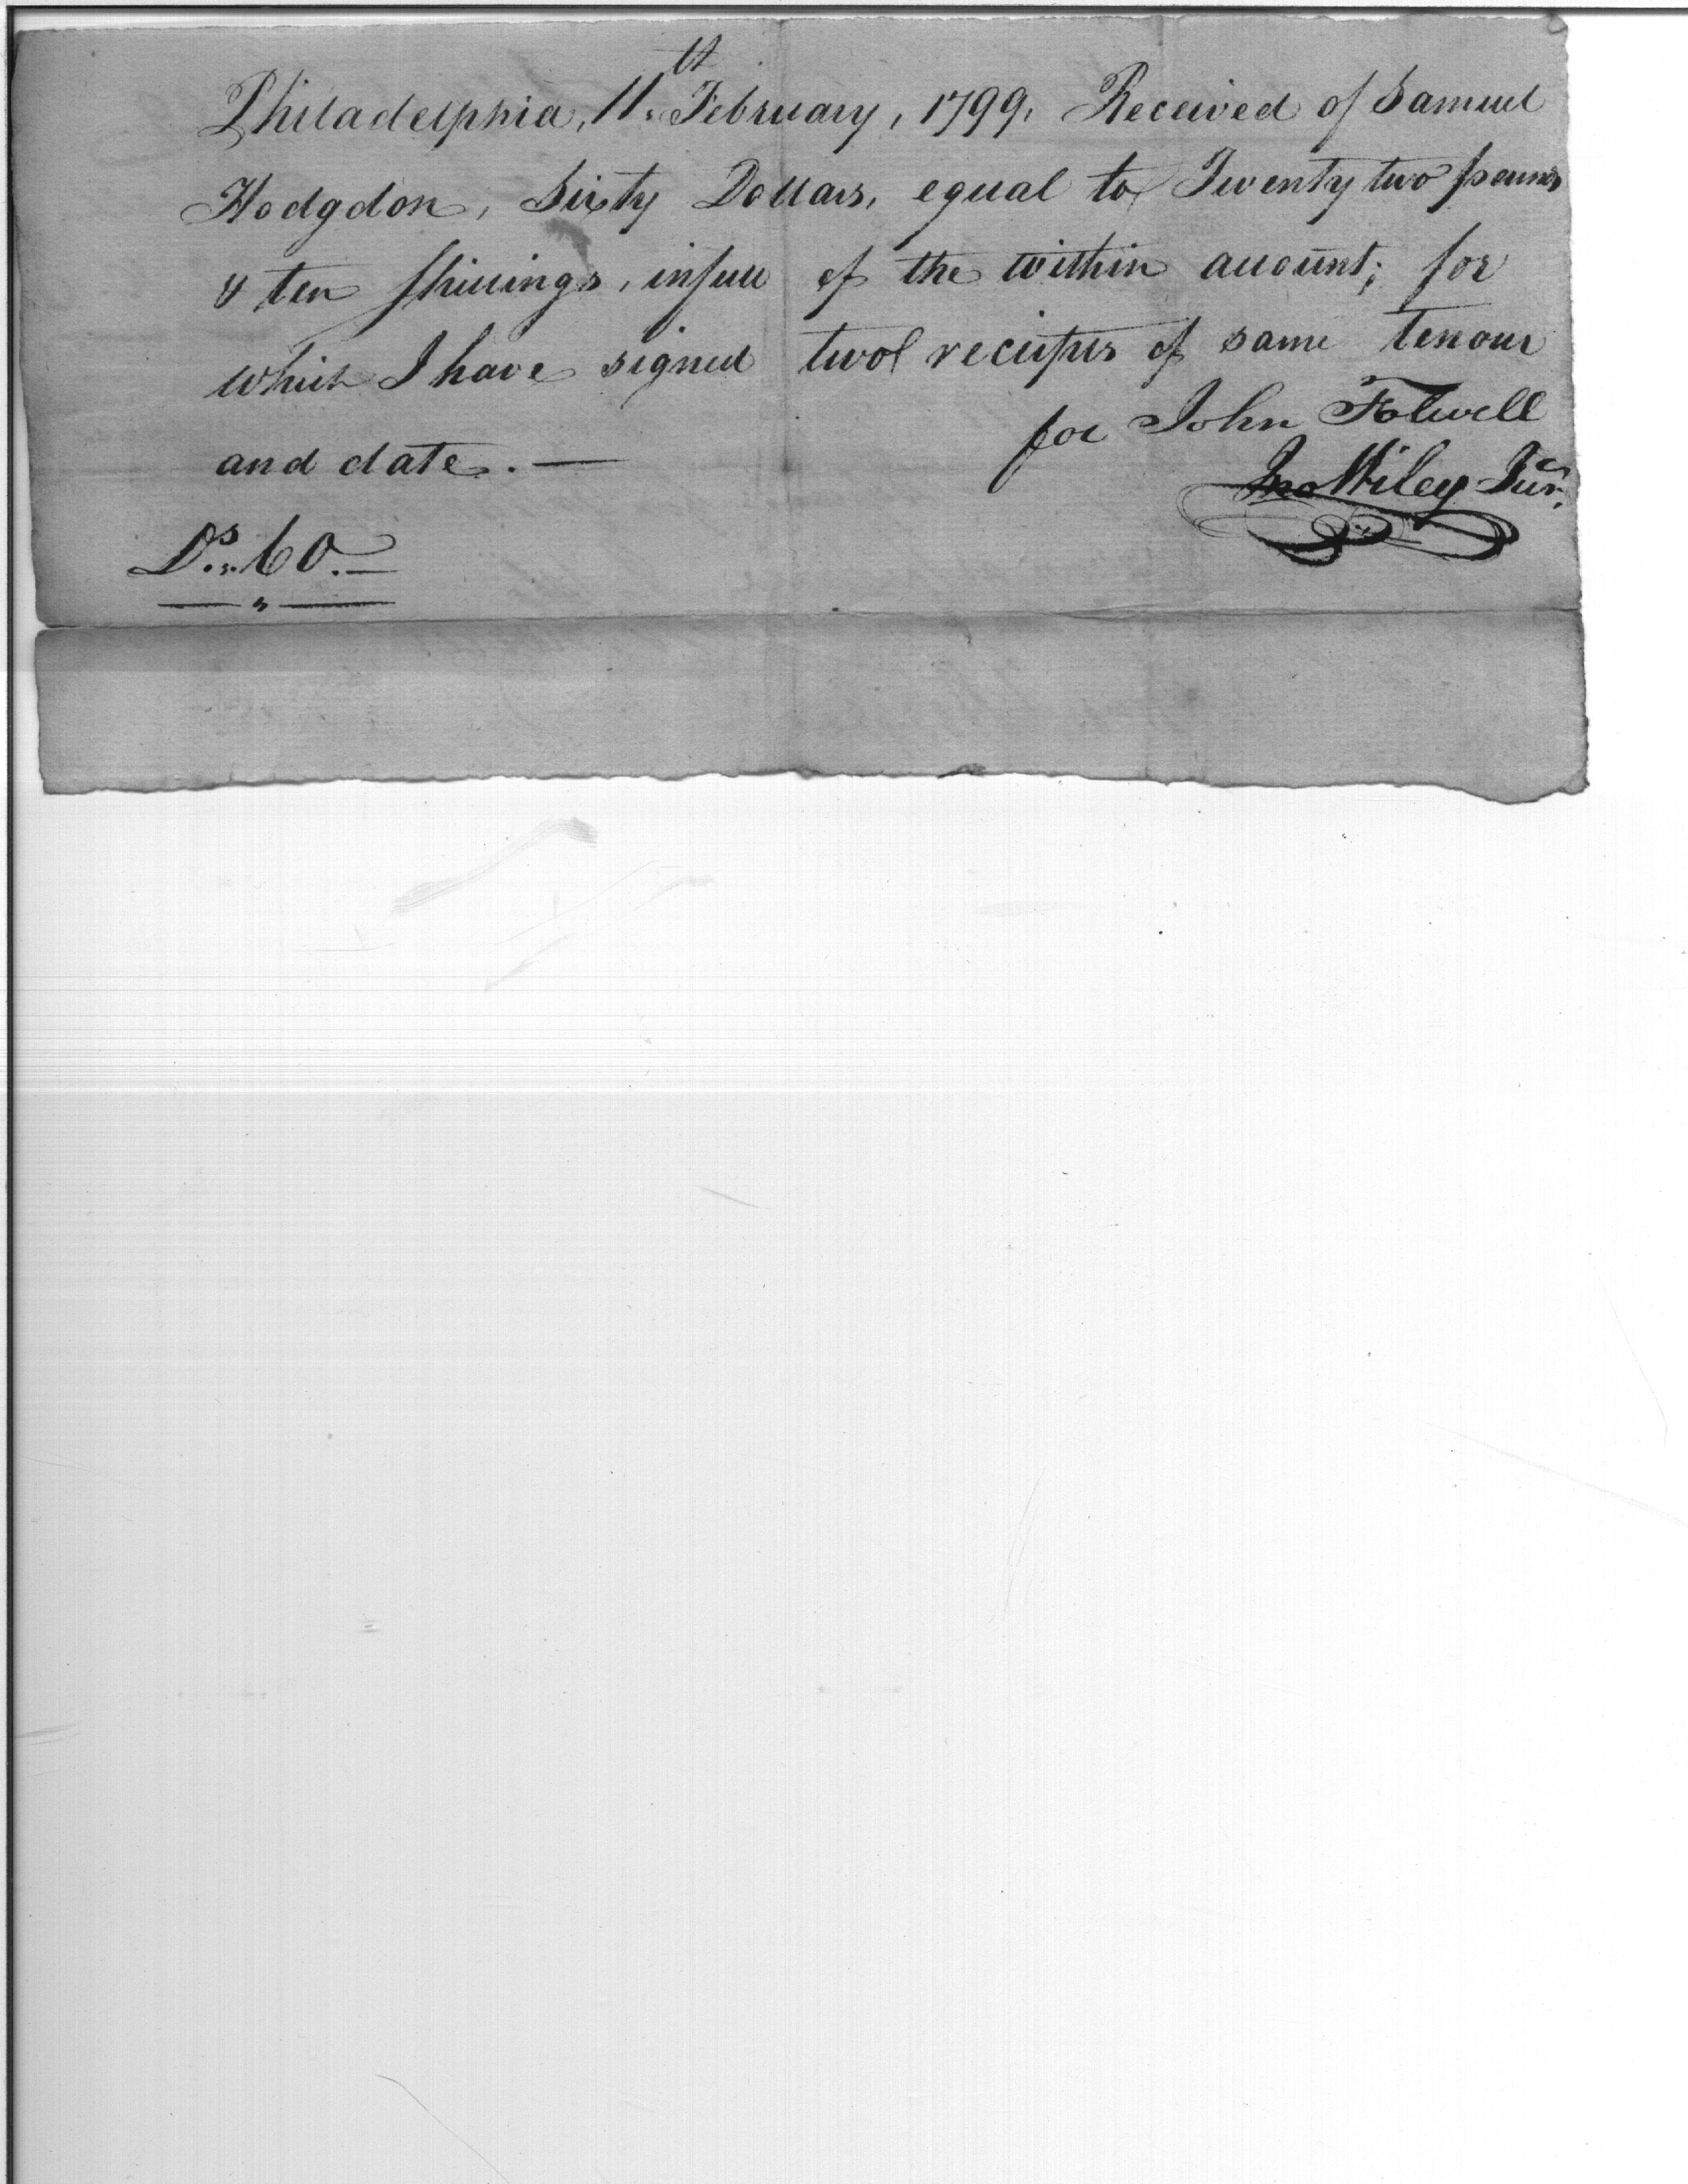 Philadelphia, 11.th February, 1799. Received of Samuel
Hodgdon, Sixty Dollars, equal to Twenty two pounds
& ten shillings, in full of the within account; for
which I have signed two receipts of same tenour
and date. —
for John Folwell
Jno Wiley Junr.
Ds. 60. —